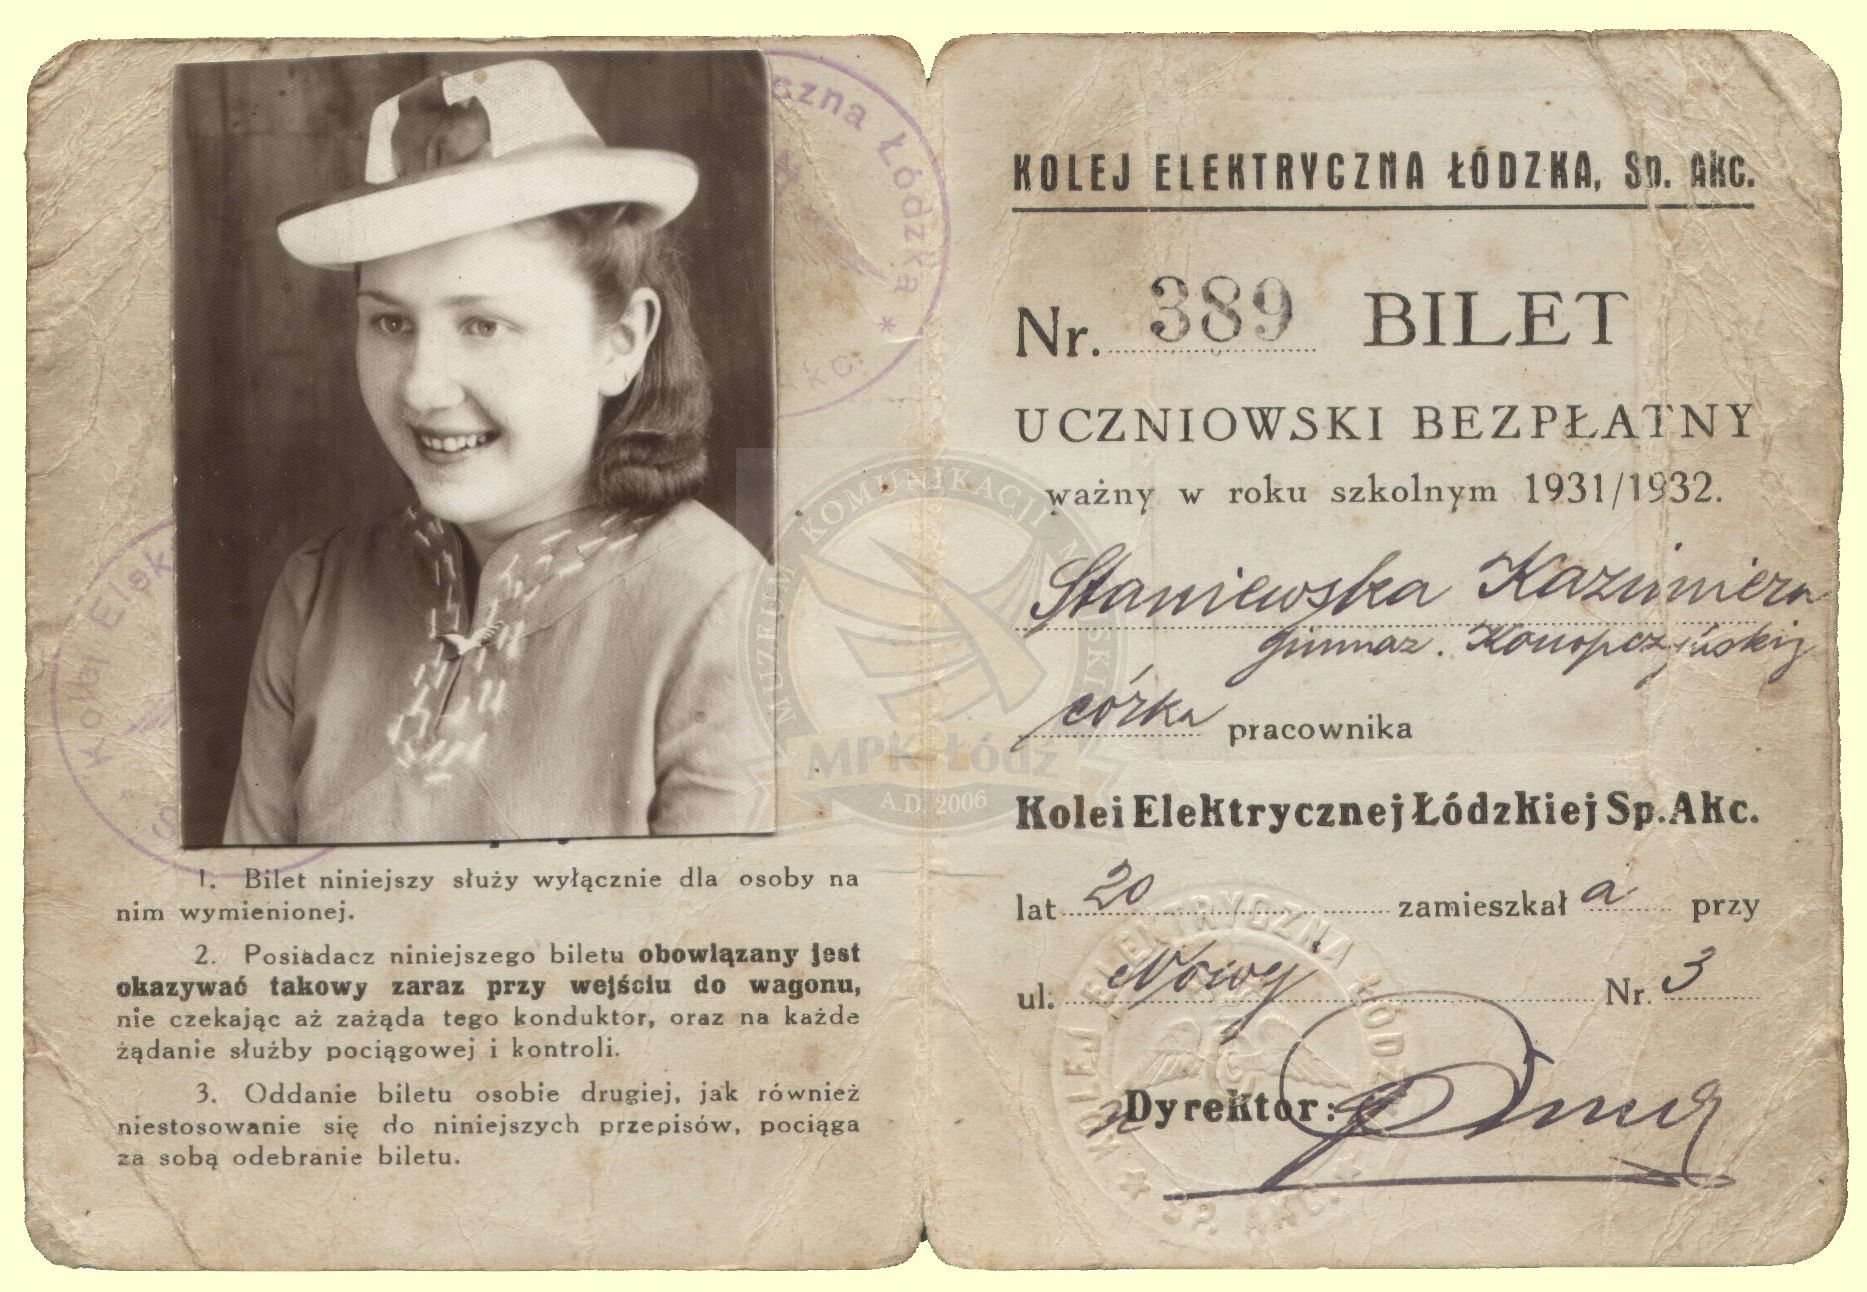 Kolej Elektryczna Łódzka
KOLEJ ELEKTRYCZNA ŁÓDZKA, Sp. Akc.
Nr. 389 BILET
UCZNIOWSKI BEZPŁATNY
ważny w roku szkolnym 1931/1932.
Staniewska Kazimiera
gimnaz. Konopczyńskiej
córka pracownika
Kolei Elektrycznej Łódzkiej Sp. Akc.
lat 20 zamieszkał a przy
ul. Nr. 3
Dyrektor:
KOLEJ ELEKTRYCZNA ŁÓDZKA
SP. AKC.
1. Bilet niniejszy służy wyłącznie dla osoby na
nim wymienionej.
2. Posiadacz niniejszego biletu obowiązany jest
okazywać takowy zaraz przy wejściu do wagonu,
nie czekając aż zażąda tego konduktor, oraz na każde
żądanie służby pociągowej i kontroli.
3. Oddanie biletu osobie drugiej, jak również
niestosowanie się do niniejszych przepisów, pociąga
za sobą odebranie biletu.
MUZEUM KOMUNIKACJI MIEJSKIEJ
MPK-Łódź
A.D. 2006